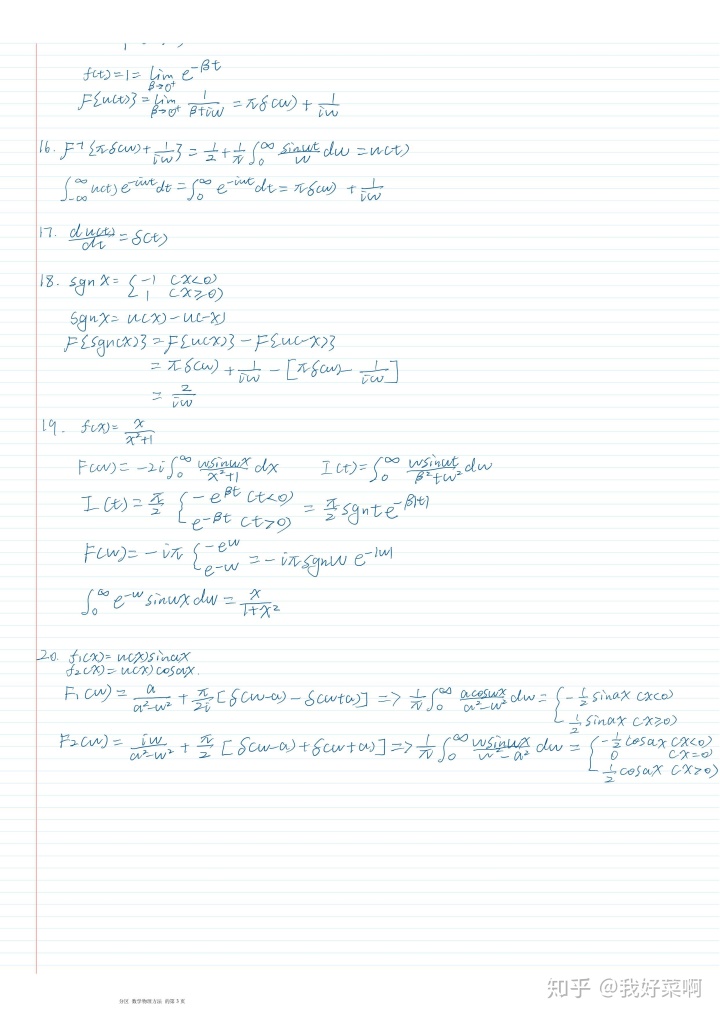 f(t)=1=lim_{β→0⁺} e^{-βt}
F{u(t)}=lim_{β→0⁺} 1/(β+iw) = πδ(w) + 1/(iw)
16. F⁻¹{πδ(w)+1/(iw)} = 1/2 + 1/π ∫₀^∞ sinwt/w dw = u(t)
∫_{-∞}^∞ u(t) e^{-iwt} dt = ∫₀^∞ e^{-iwt} dt = πδ(w) + 1/(iw)
17. du(t)/dt = δ(t)
18. sgn x = { -1 (x<0)
1 (x≥0)
sgn x = u(x) - u(-x)
F{sgn(x)} = F{u(x)} - F{u(-x)}
= πδ(w) + 1/(iw) - [πδ(w) - 1/(iw)]
= 2/(iw)
19. f(x) = x/(x²+1)
F(w) = -2i ∫₀^∞ wsinwx/(x²+1) dx I(t) = ∫₀^∞ wsinwt/(β²+w²) dw
I(t) = π/2 { -e^{βt} (t<0) = π/2 sgnt e^{-β|t|}
e^{-βt} (t>0)
F(w) = -iπ { -e^w = -iπ sgnw e^{-|w|}
e^{-w}
∫₀^∞ e^{-w} sinwx dw = x/(1+x²)
20. f₁(x) = u(x)sinax
f₂(x) = u(x)cosax.
F₁(w) = a/(a²-w²) + π/(2i) [δ(w-a) - δ(w+a)] => 1/π ∫₀^∞ acoswx/(a²-w²) dw = { -1/2 sinax (x<0)
1/2 sinax (x≥0)
F₂(w) = iw/(a²-w²) + π/2 [δ(w-a) + δ(w+a)] => 1/π ∫₀^∞ wsinwx/(w²-a²) dw = { -1/2 cosax (x<0)
0 (x=0)
1/2 cosax (x>0)
知乎 @我好菜啊
分区 数学物理方法 的第 3 页